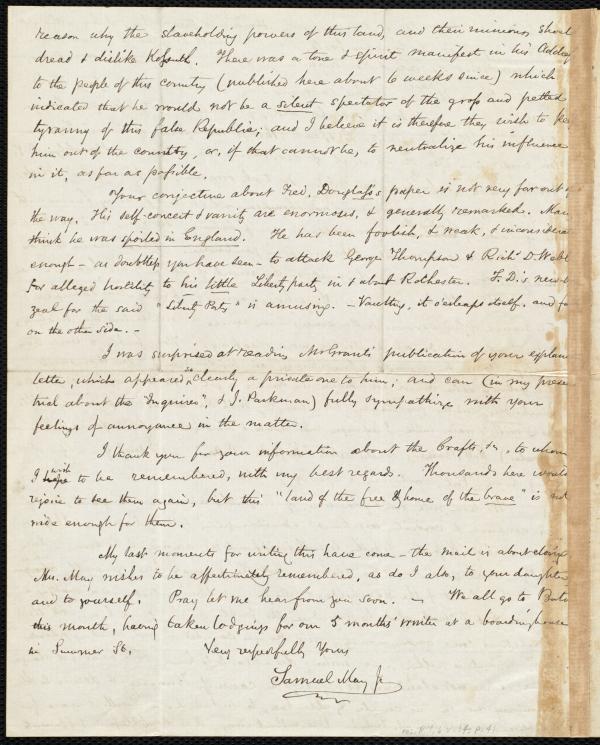 reason why the slaveholding powers of this land, and their minions, should
dread & dislike Kossuth. There was a tone & spirit manifest in his Address
to the people of this country (published here about 6 weeks since) which
indicated that he would not be a silent spectator of the gross and petted
tyranny of this false Republic; and I believe it is therefore they wish to
him out of the country, or, if that cannot be, to neutralize his influence
in it, as far as possible.
Your conjecture about Fred. Douglass's paper is not very far out of
the way. His self-conceit & vanity are enormous, & generally remarked. Many
think he was spoiled in England. He has been foolish, & weak, & inconsiderate
enough - as doubtless you have seen - to attack George Thompson & Richd D. Webb
for alleged hostility to his little Liberty party in & about Rochester. F. D.'s
zeal for the said "Liberty Party" is amusing. - Vaulting, it o'erleaps itself, and
on the other side. -
I was surprised at reading McGrant's publication of your
letter, which appeared so clearly a private one to him; and can (in my
trial about the "Inquirer", & J. Parkman) fully sympathize with your
feelings of annoyance in the matter.
I thank you for your information about the Crafts, &c., to whom
I wish to be remembered, with my best regards. Thousands here would
rejoice to see them again, but this "land of the free & home of the brave" is not
wide enough for them.
My last moments for writing this have come - the mail is about closing.
Mrs. May wishes to be affectionately remembered, as do I also, to your daughter
and to yourself. Pray let me hear from you soon. - We all go to
this month, having taken lodgings for our 5 months' winter at a boarding house
in Summer St. Very respectfully Yours
Samuel May Jr